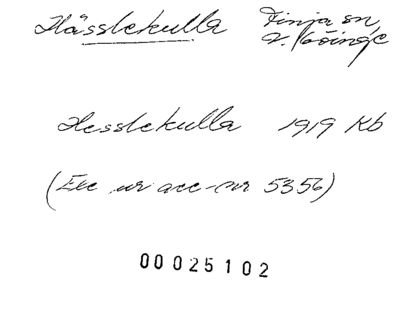 Hässlekulla Finja sn
V. Göinge
Hesslekulla 1919 Kb
(Exc ur acc-nr 5356)
00025102